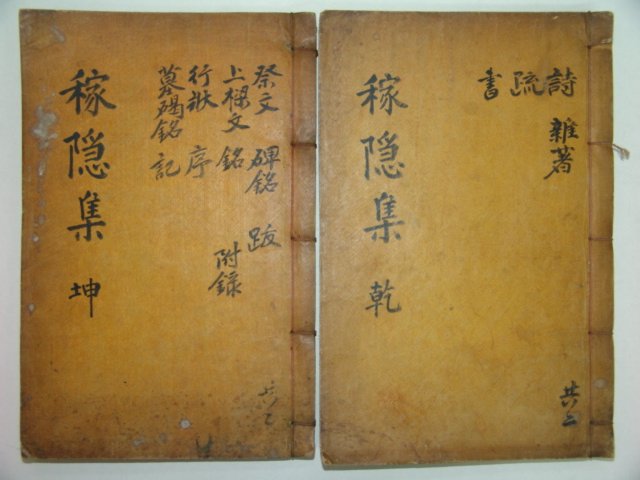 詩 雜著
疏
書
稼隠集 乾
共二
祭文 碑銘 跋
上樑文 銘
附錄
行狀 序
墓碣銘 記
稼隠集 坤
共二